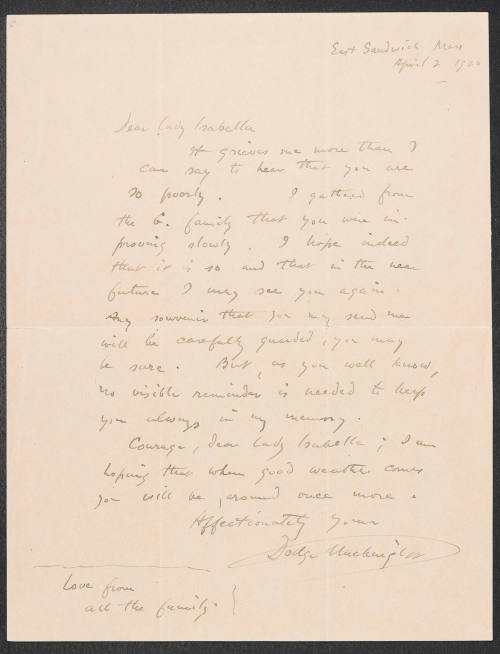 East Sandwich Mass
April 2 1920
Dear Lady Isabella
It grieves me more than I
can say to hear that you are
so poorly. I gathered from
the G. family that you were im-
proving slowly. I hope indeed
that it is so and that in the near
future I may see you again.
Any souvenir that you may send me
will be carefully guarded, you may
be sure. But, as you well know,
no visible reminder is needed to keep
you always in my memory.
Courage, dear Lady Isabella; I am
hoping that when good weather comes
you will be around once more.
Affectionately yours
Dodge Macknight
Love from
all the family.